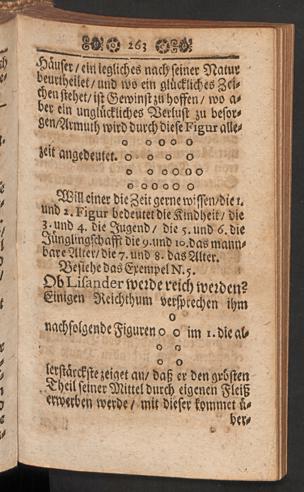 263
Häuser / ein jegliches nach seiner Natur
beurtheilet / und wo ein glückliches Zei-
chen stehet / ist Gewinst zu hoffen / wo a-
ber ein unglückliches Verlust zu besor-
gen / Armuth wird durch diese Figur alle-
zeit angedeutet.
Will einer die Zeit gerne wissen / die 1.
und 2. Figur bedeutet die Kindheit / die
3. und 4. die Jugend / die 5. und 6. die
Jünglingschafft die 9. und 10. das mann-
bare Alter / die 7. und 8. das Alter.
Besiehe das Exempel N. 5.
Ob Lisander werde reich werden?
Einigen Reichthum versprechen ihm
nachfolgende Figuren im 1. die al-
lerstärckste zeiget an / daß er den grösten
Theil seiner Mittel durch eigenen Fleiß
erwerben werde / mit dieser kommet ü-
ber-